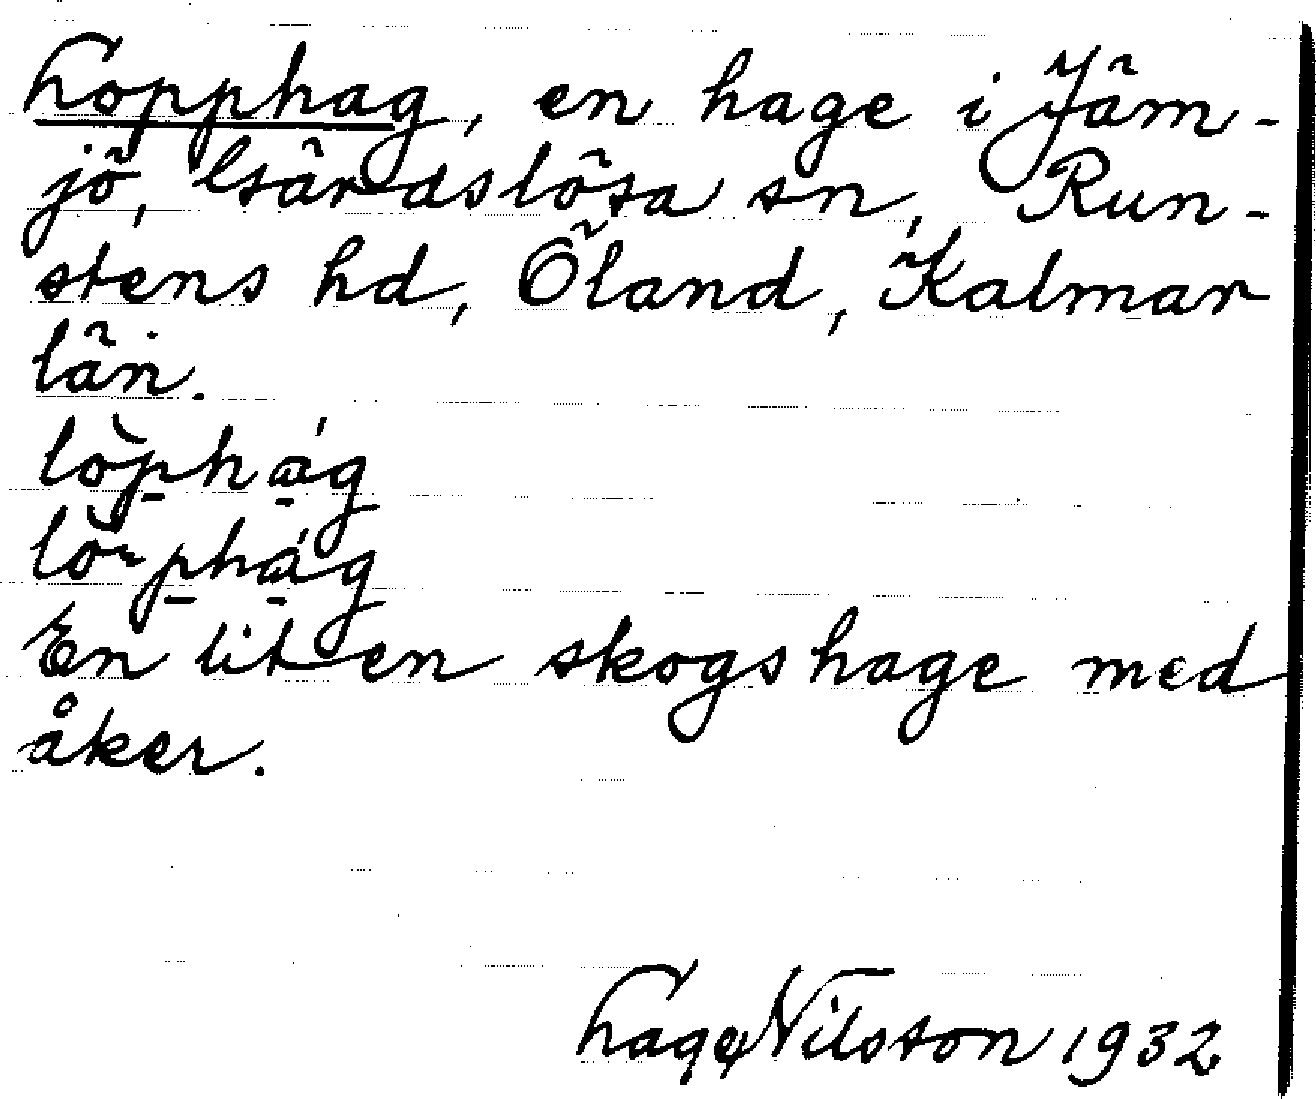 Lopphag, en hage i Jäm-
jö, Gärdslösa sn, Run-
stens hd, Öland, Kalmar
län.
lòphág
lò̵phág
En liten skogshage med
åker.
Lage Nilsson 1932